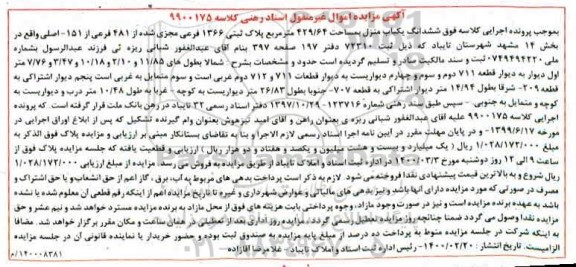 آگهی مزایده اموال غیرمنقول اسناد رهنی کلاسه 9900175
بموجب پرونده اجرایی کلاسه فوق ششدانگ یکباب منزل بمساحت 429/64 مترمربع پلاک ثبتی 1366 فرعی مجزی شده از 481 فرعی از 151- اصلی واقع در
بخش 14 مشهد شهرستان تایباد که ذیل ثبت 72310 دفتر 197 صفحه 397 بنام آقای عبدالغفور شبانی ریزه ئی فرزند عبدالرسول بشماره
ملی 0749494220 ثبت و سند مالکیت صادر و تسلیم گردیده است حدود و مشخصات بشرح : شمالا بطول های 11/85 و 2/10 و 10/18 و 3/47 و 7/76 و متر
اول دیوار به دیوار قطعه 711 دوم و سوم و چهارم دیواریست به دیوار قطعات 711 و 712 دوم غربی است و سوم متمایل به غربی است پنجم دیوار اشتراکی به
قطعه 209- شرقا بطول 14/94 متر دیوار اشتراکی به قطعه 707- جنوبا بطول 26/83 متر دیواریست به کوچه - غربا به طول 10/48 متر درب و دیواریست به
کوچه و متمایل به جنوبی - سپس طبق سند رهنی شماره 123716-1397/10/29 دفتر اسناد رسمی 32 تایباد در رهن بانک ملت قرار گرفته است. که پرونده
اجرایی کلاسه 9900175 علیه آقای عبدالغفور شبانی ریزه ی بعنوان راهن و آقای امید تیرهوش بعنوان وام گیرنده تشکیل که پس از ابلاغ اوراق اجرایی در
مورخه 1399/6/17- و در پایان مهلت مقرر در آیین نامه اجرا اسناد رسمی لازم الاجرا و بنا به تقاضای بستانکار مبنی بر ارزیابی و مزایده پلاک فوق الذکر به
مبلغ 1/028/172/000 ریال ( یک میلیارد و بیست و هشت میلیون و یکصد و هفتاد و دو هزار ریال ) ارزیابی و قطعیت یافته که جلسه مزایده پلاک فوق از
ساعت 9 الی 12 روز دوشنبه مورخ 1400/03/3 در اداره ثبت اسناد و املاک تایباد از طریق مزایده به فروش می رسد. مزایده از مبلغ ارزیابی 1/028/172/000
ریال شروع و به بالاترین قیمت پیشنهادی نقدا فروخته می شود. لازم به ذکر است پرداخت بدهی های مربوط به آب، برق ، گاز اعم از حق انشعاب و یا حق اشتراک و
مصرف در صورتی که مورد مزایده دارای آنها باشد و نیز بدهی های مالیاتی و عوارض شهرداری و غیره تا تاریخ مزایده اعم از اینکه رقم قطعی آن معلوم شده یا نشده
باشد به عهده برنده مزایده است و نیز در صورت وجود مازاد، وجوه پرداختی بابت هزینه های فوق از محل مازاد به برنده مزایده مسترد خواهد شد و نیم عشر و حق
مزایده نقدا وصول می گردد ضمنا چنانچه روز مزایده تعطیل رسمی گردد، مزایده روز اداری بعد از تعطیلی در همان ساعت و مکان مقرر برگزار خواهد شد. مضافا
به اینکه شرکت در جلسه مزایده منوط به پرداخت ده درصد از مبلغ پایه مزایده به صندوق ثبت بوده و حضور خریدار یا نماینده قانونی آن در جلسه مزایده
الزامیست. تاریخ انتشار : 1400/02/20- رئیس اداره ثبت اسناد و املاک تایباد - غلامرضا آقازاده
140008381/م